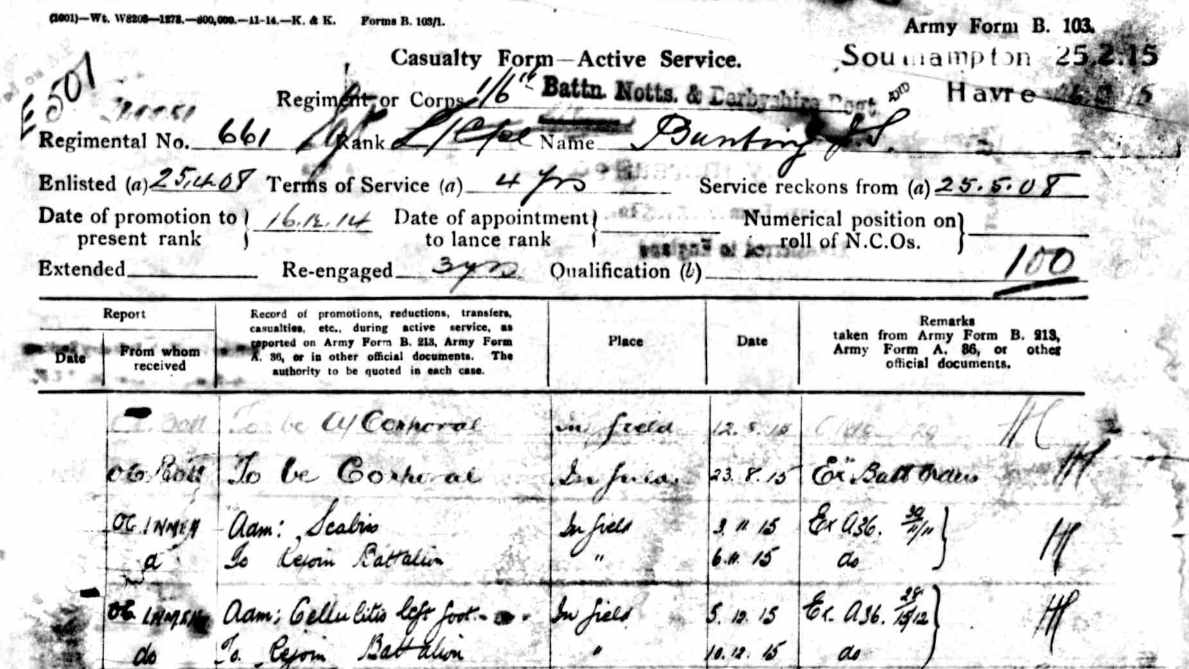 (2001)—Wt. W8208—1278.—800,000.—11-14.—K. & K. Forms B. 103/1.
Army Form B. 103.
Casualty Form—Active Service.
Southampton 25.2.15
E501
Regiment or Corps 1/6th Battn. Notts. & Derbyshire Regt
Havre 15
Regimental No. 661 Rank L/Cpl Name Bunting J.S.
Enlisted (a) 25.4.08 Terms of Service (a) 4 yrs Service reckons from (a) 25.5.08
Date of promotion to present rank 16.12.14 Date of appointment to lance rank Numerical position on roll of N.C.Os.
Extended Re-engaged 3 yrs Qualification (b) 100
Report
Date
From whom received
Record of promotions, reductions, transfers, casualties, etc., during active service, as reported on Army Form B. 213, Army Form A. 36, or in other official documents. The authority to be quoted in each case.
Place
Date
Remarks taken from Army Form B. 213, Army Form A. 36, or other official documents.
To be A/Corporal in field 12. 15
OC Batt To be Corporal In field 23.8.15 Ex Batt Orders
OC 1NMFA Adm: Scabies In field 3.11.15 Ex A36. 30/11/11
do To Rejoin Battalion " 6.11.15 do
OC 1NMFA Adm: Cellulitis left foot In field 5.12.15 Ex. A36. 28/15/12
do To Rejoin Battalion " 10.12.15 do